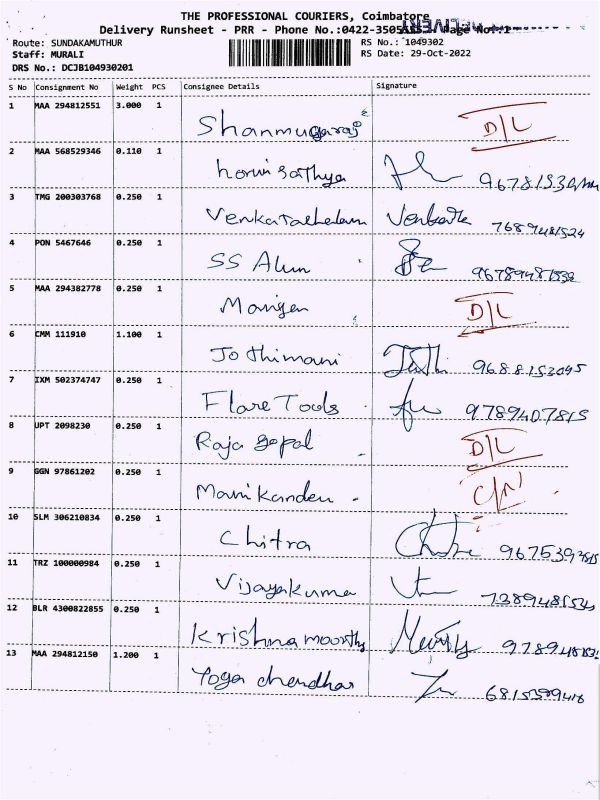 THE PROFESSIONAL COURIERS, Coimbatore
Delivery Runsheet - PRR - Phone No.:0422-3505 Page No.:1
Route: SUNDAKAMUTHUR RS No.: 1049302
Staff: MURALI RS Date: 29-Oct-2022
DRS No.: DCJB104930201
S No Consignment No Weight PCS Consignee Details Signature
1 MAA 294812551 3.000 1 Shanmugaraj D/L
2 MAA 568529346 0.110 1 sathya
3 TMG 200303768 0.250 1 Venkatachalam 7689481524
4 PON 5467646 0.250 1 SS Alun
5 MAA 294382778 0.250 1 D/L
6 CMM 111910 1.100 1 Jothimani Jothi 9688152045
7 IXM 502374747 0.250 1 Flare Tools 9789407815
8 UPT 2098230 0.250 1 Raja Gopal D/L
9 GGN 97861202 0.250 1 Manikanden
10 SLM 306210834 0.250 1 Chitra
11 TRZ 100000984 0.250 1 Vijayakuma
12 BLR 4300822855 0.250 1 Krishnamoorthy
13 MAA 294812150 1.200 1 Yoga chendhar